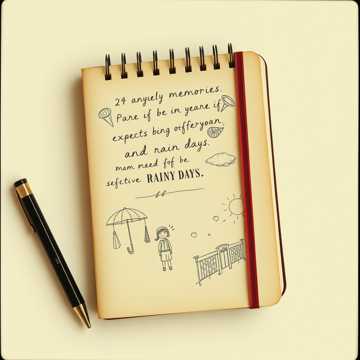 24 anyiely memories.
Pare if be in yeare if
expects bing otfferyoan,
and rain days.
mom need fof be
sefctive RAINY DAYS.